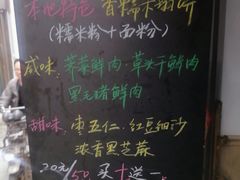 本地特色 香糯米甜斤
(糯米粉+面粉)
咸味: 荠菜鲜肉、草头干鲜肉
黑毛猪鲜肉
甜味: 枣五仁、红豆细沙
浓香黑芝麻
20元/50 买十送一